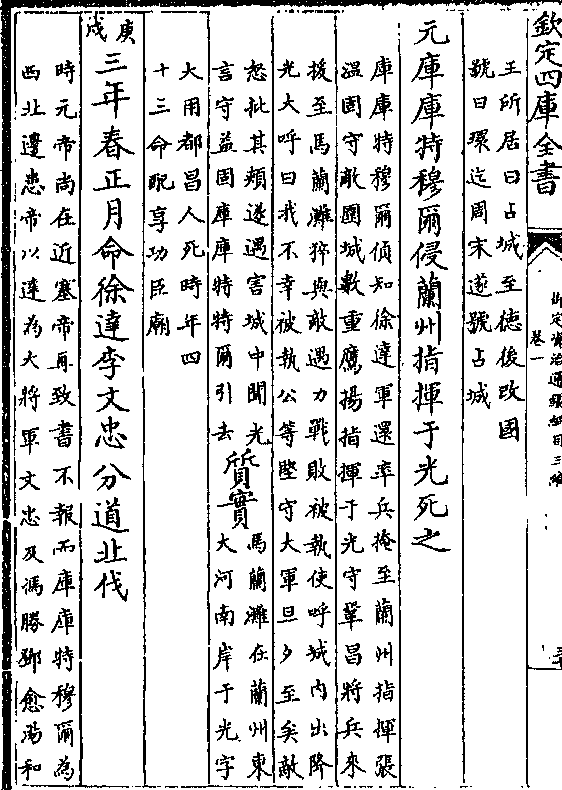 欽定四庫全書
御定資治通鑑綱目三編
卷一
王所居曰占城至德後改國
號曰環迄周末遂號占城
元庫庫特穆爾侵蘭州指揮于光死之
庫庫特穆爾偵知徐達軍還率兵掩至蘭州指揮張
溫固守敵圍城數重鷹揚指揮于光守鞏昌將兵來
援至馬蘭灘猝與敵遇力戰敗被執使呼城内出降
光大呼曰我不幸被執公等堅守大軍旦夕至矣敵
怒批其頰遂遇害城中聞光
言守益固庫庫特特爾引去
質實
馬蘭灘在蘭州東
大河南岸于光字
大用都昌人死時年四
十三命配享功臣廟
庚戌
三年春正月命徐達李文忠分道北伐
時元帝尚在近塞帝再致書不報而庫庫特穆爾為
西北邊患帝以達為大將軍文忠及馮勝鄧愈湯和